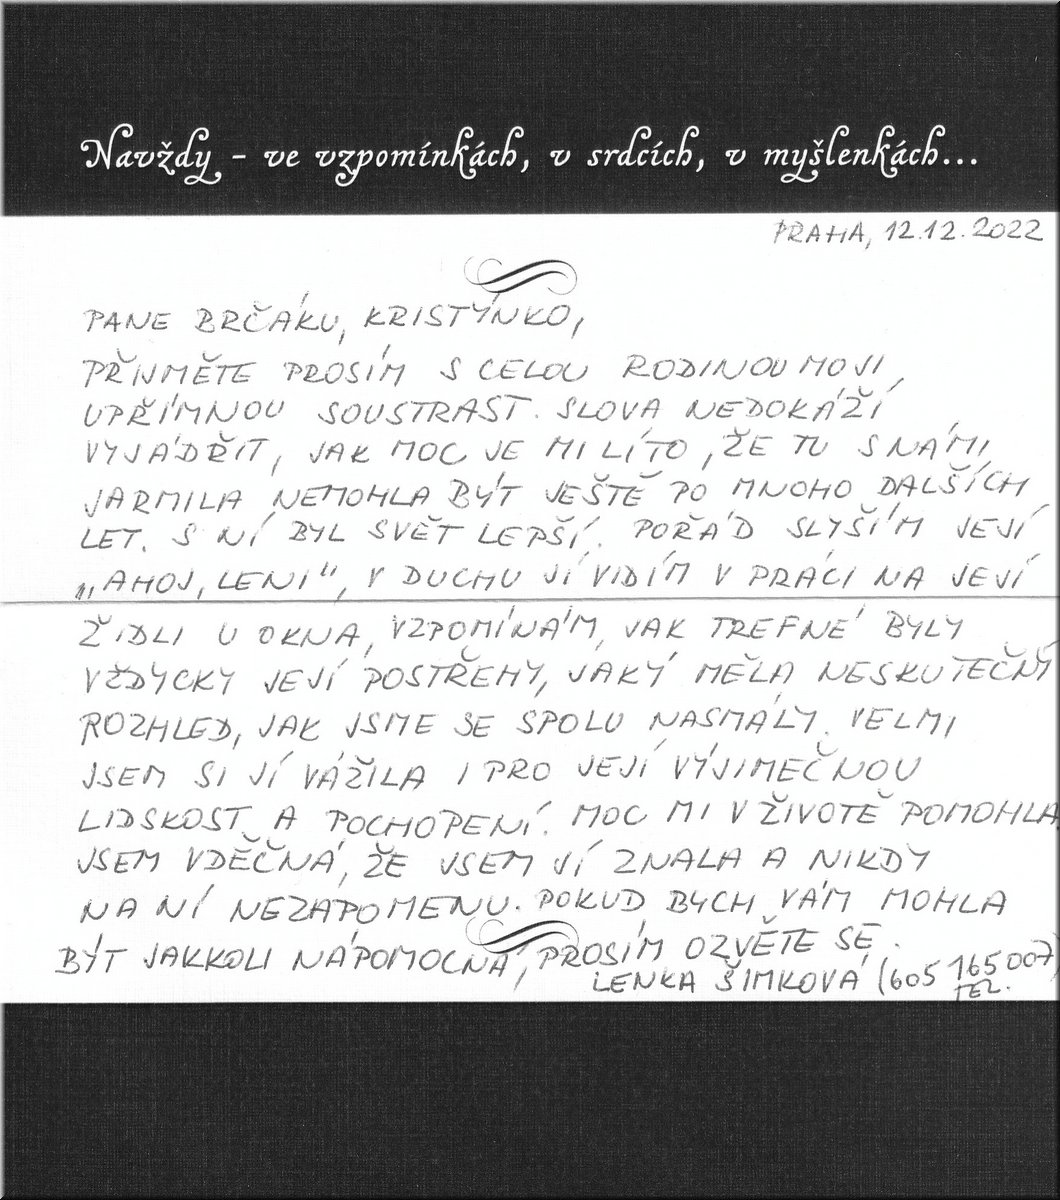 Navždy - ve vzpomínkách, v srdcích, v myšlenkách...
PRAHA, 12.12.2022
PANE BRČÁKU, KRISTÝNKO,
PŘIJMĚTE PROSÍM S CELOU RODINOU MOJI
UPŘÍMNOU SOUSTRAST. SLOVA NEDOKÁŽÍ
VYJÁDŘIT, JAK MOC JE MI LÍTO, ŽE TU S NÁMI
JARMILA NEMOHLA BÝT JEŠTĚ PO MNOHO DALŠÍCH
LET. S NÍ BYL SVĚT LEPŠÍ. POŘÁD SLYŠÍM JEJÍ
„AHOJ, LENI“, V DUCHU JÍ VIDÍM V PRÁCI NA JEJÍ
ŽIDLI U OKNA, VZPOMÍNÁM, JAK TREFNÉ BYLY
VŽDYCKY JEJÍ POSTŘEHY, JAKÝ MĚLA NESKUTEČNÝ
ROZHLED, JAK JSME SE SPOLU NASMÁLY. VELMI
JSEM SI JÍ VÁŽILA I PRO JEJÍ VÝJIMEČNOU
LIDSKOST A POCHOPENÍ. MOC MI V ŽIVOTĚ POMOHLA
JSEM VDĚČNÁ, ŽE JSEM JÍ ZNALA A NIKDY
NA NÍ NEZAPOMENU. POKUD BYCH VÁM MOHLA
BÝT JAKKOLI NÁPOMOCNÁ, PROSÍM OZVĚTE SE.
LENKA ŠIMKOVÁ (605 165 007)
TEL.